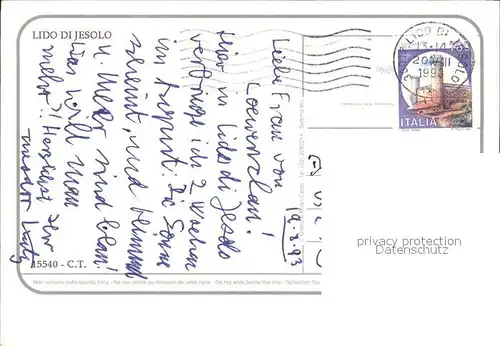 LIDO DI JESOLO
LIDO DI JESOLO
13-14
20 VIII
1993
ITALIA
19.8.93
Liebe Frau von
Loewenclau!
Hier in Lido di Jesolo
verbringe ich 2 Wochen
im August. Die Sonne
scheint, und Himmel
u. Meer sind blau!
Was will man
mehr! Herzlichst Ihr
15540 - C.T.
privacy protection
Datenschutz